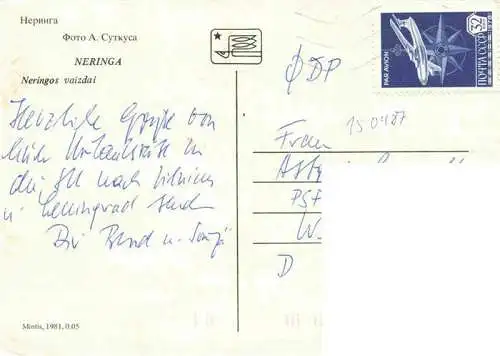 Неринга
Фото А. Суткуса
NERINGA
Neringos vaizdai
Herzliche Grüße von
der Urlaubsreise in
die SU nach Vilnius
u. Leningrad
Bernd u.
Mintis, 1981, 0.05
PAR AVION
32
ПОЧТА СССР
ФДР
150487
Frau
PSF
W.
D